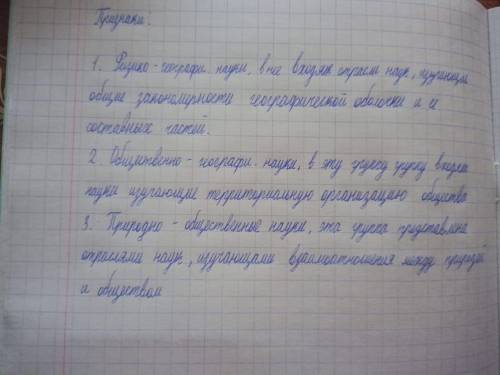 Признаки.
1. Физико - географи. науки, в нее входят отрасли наук, изучающие
общие закономерности географической оболочки и ее
составных частей.
2. Общественно - географи. науки, в эту группу группу входят
науки изучающие территориальную организацию общества
3. Природно - общественные науки, эта группа представлена
отраслями наук, изучающими взаимоотношения между природой
и обществом